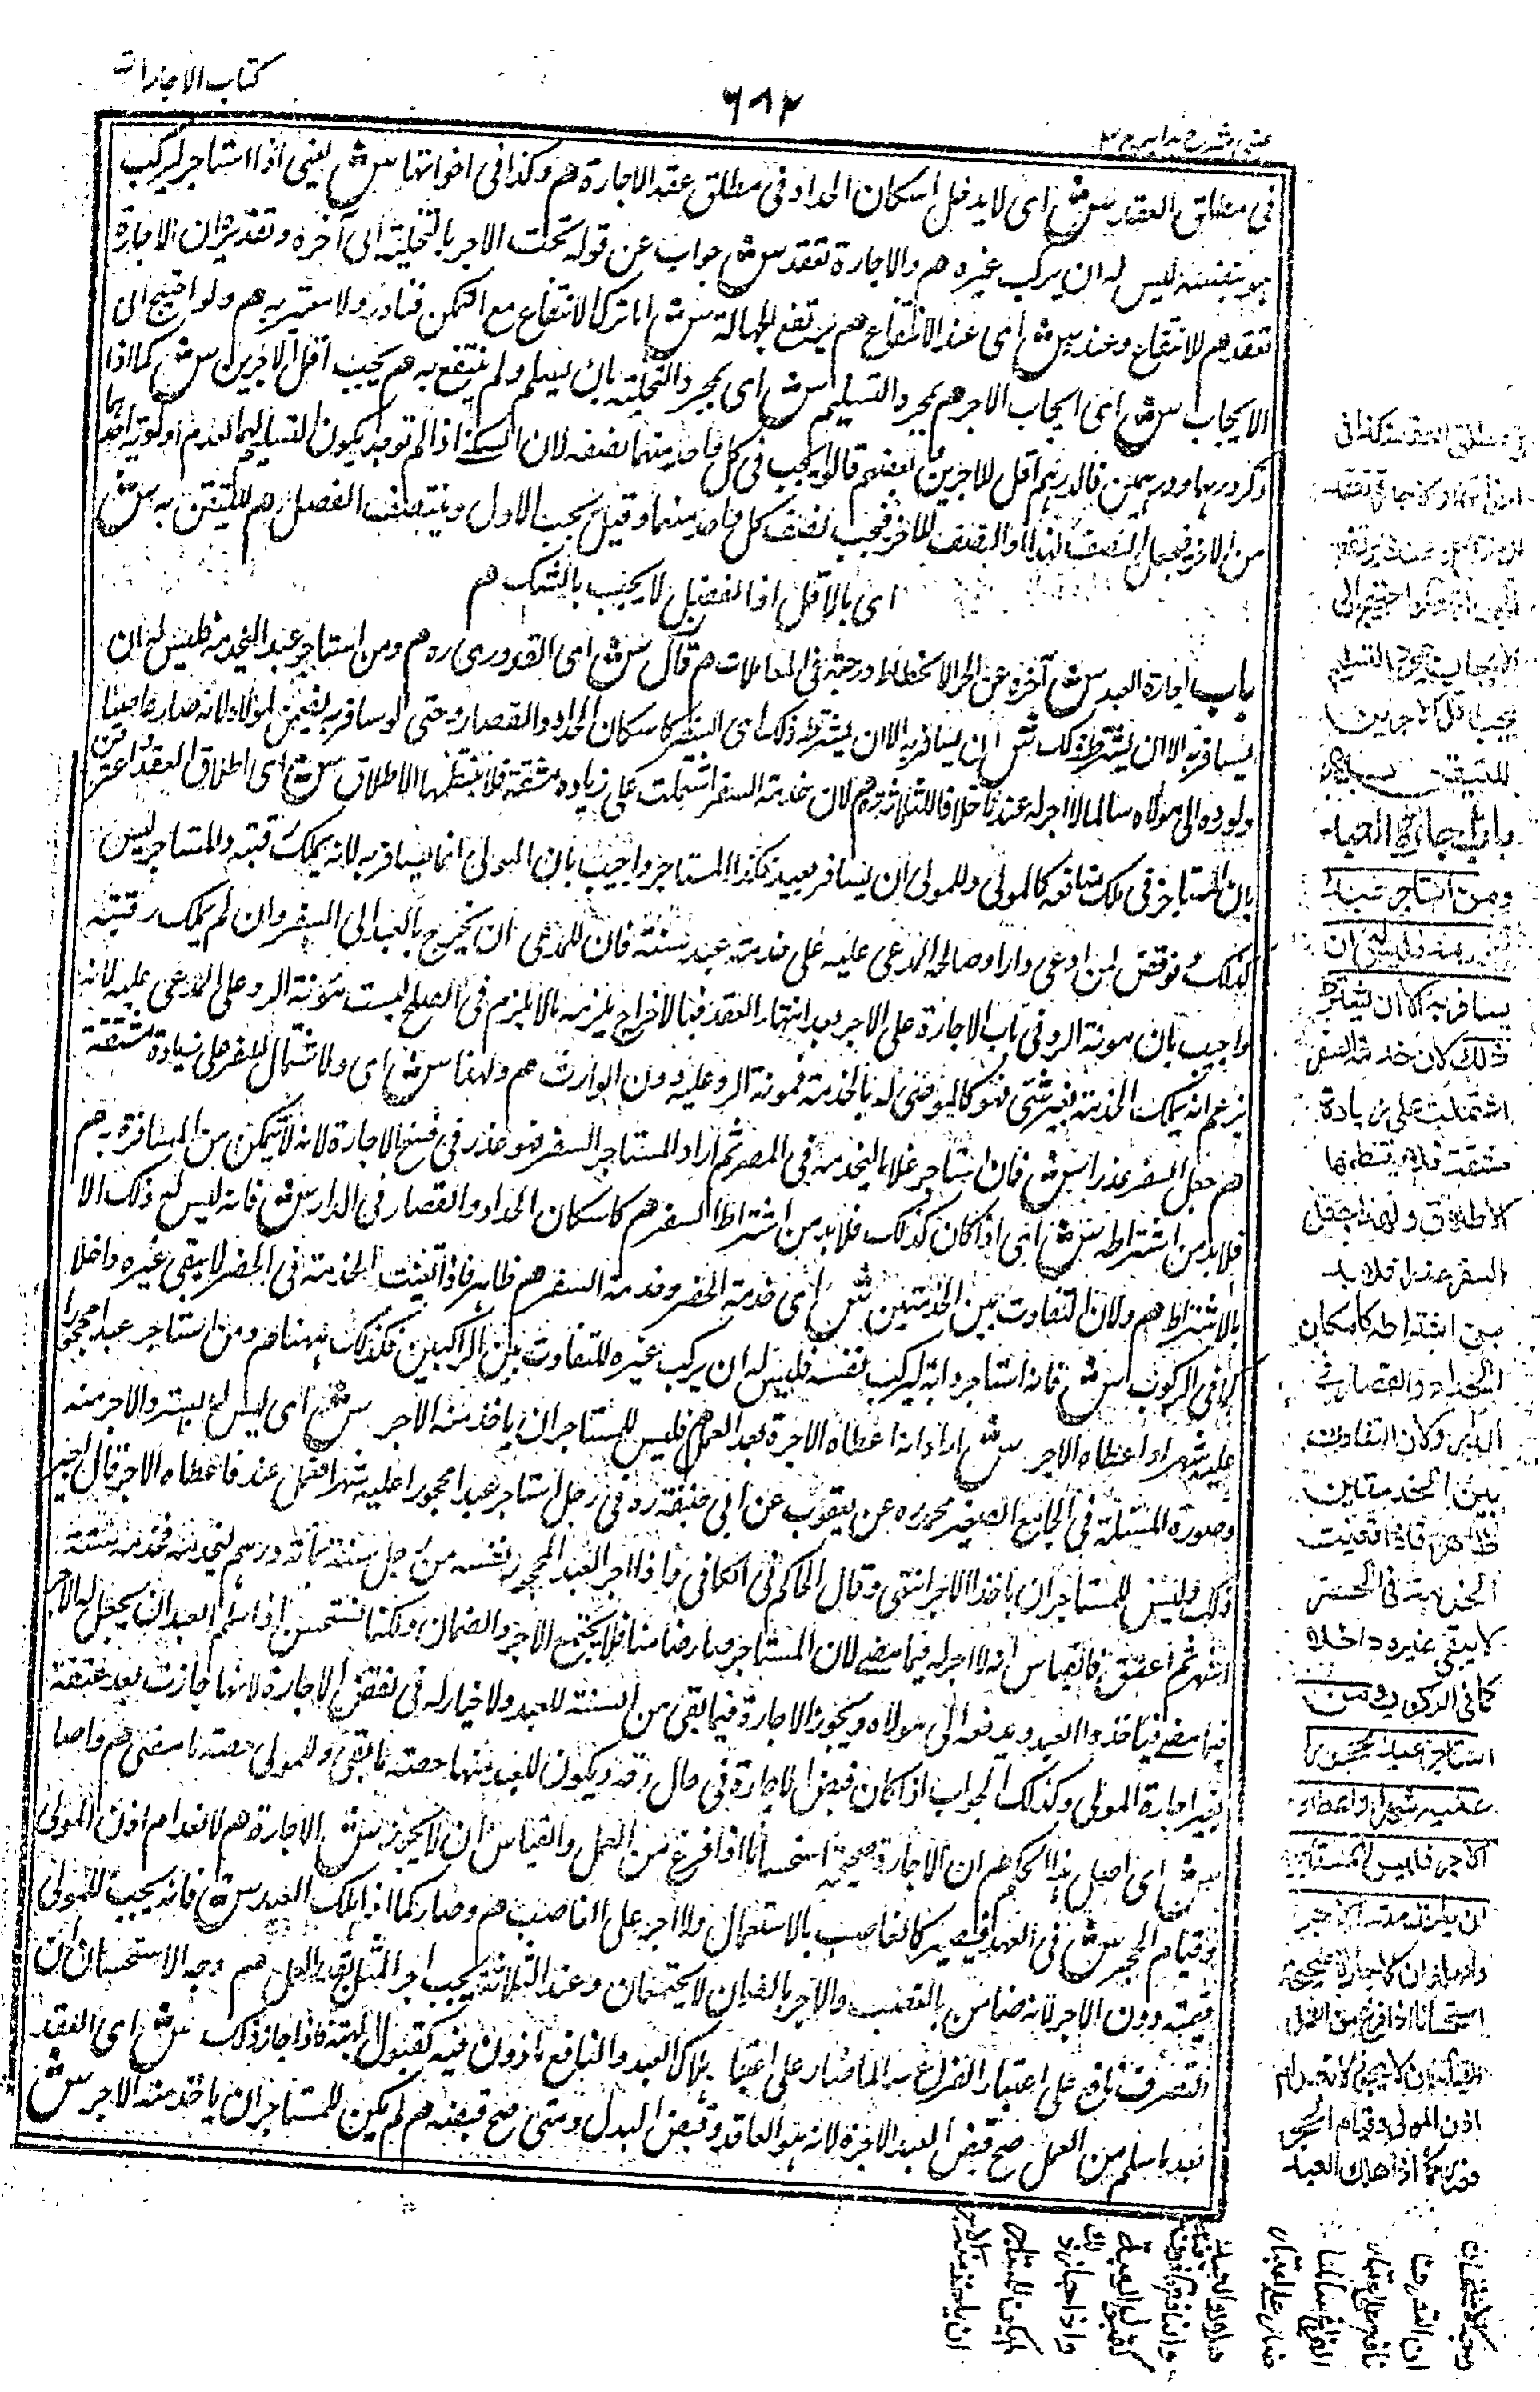 كتاب الاجارات
٦٨٢
عينى شرح هدايه ج ٣
فى مطلق العقد ش اى لا يدخل اسكان الحداد فى مطلق عقد الاجارة هم وكذا فى اخواتها ش يعنى اذا استاجر ليركب
هو بنفسه ليس له ان يركب غيره هم والاجارة تعقد ش جواب عن قوله تحت الاجر بالتخلية الى آخره وتقديره ان الاجارة
تعقد هم للانتفاع وعنده ش اى عند الانتفاع هم يرتفع الجهالة ش اما ترك الانتفاع مع التمكن فنادر ولا معتبر به هم ولو احتيج الى
الايجاب ش اى ايجاب الاجر هم بمجرد التسليم ش اى بمجرد التخلية بان يسلم ولم ينتفع به هم يجب اقل الاجرين ش كما اذا
ذكر درهما ودرهمين فالدرهم اقل الاجرين بعضهم قالوا يجب فى كل واحد منهما نصفه لان السكنى اذا لم توجد يكون التسليم لهما لعدم اولوية احدهما
من الآخر فيجعل النصف لهذا والنصف للآخر فيجب نصف كل واحد منهما وقيل يجب الاول وينتصف الفضل هم للتيقن به ش
اى بالاقل اذ الفضل لا يجب بالشك هم
باب اجارة العبد ش آخره عن الحر لانحطاط درجته فى المعاملات هم قال ش اى القدورى ره هم ومن استاجر عبدا ليخدمه فليس له ان
يسافر به الا ان يشترط ذلك ش اى ان يسافر به الا ان يشترط ذلك اى السفر كاسكان الحداد والقصار وحتى لو سافر به يضمن لمولاه لانه صار غاصبا
ولو رده الى مولاه سالما لا اجر له عندنا خلافا للثلاثة هم لان خدمة السفر اشتملت على زيادة مشقة فلا ينتظمها الاطلاق ش اى اطلاق العقد واعترض
بان المستاجر فى ملك منافعه كالمولى وللمولى ان يسافر بعبده فكذا المستاجر واجيب بان المولى انما يسافر به لانه يملك رقبته والمستاجر ليس
كذلك ونوقض لمن ادعى دارا وصالحه المدعى عليه على خدمة عبده سنة فان للمدعى ان يخرج بالعبد الى السفر وان لم يملك رقبته
واجيب بان مونة الرد فى باب الاجارة على الاجر بعد انتهاء العقد فبالاخراج يلزمه ما لا يلزم فى الصلح ليست مونة الرد على المدعى عليه لانه
يزعم انه يملك الخدمة بغير شئ فهو كالموصى له بالخدمة فمونة الرد عليه دون الوارث هم ولهذا ش اى ولاشتمال السفر على زيادة مشقة
هم جعل السفر عذرا ش فان استاجر غلاما ليخدمه فى المصر ثم اراد المستاجر السفر فهو عذر فى فسخ الاجارة لانه لا يتمكن من المسافرة به هم
فلابد من اشتراطه ش اى اذا كان كذلك فلابد من اشتراط السفر هم كاسكان الحداد والقصار فى الدار ش فانه ليس له ذلك الا
بالاشتراط هم ولان التفاوت بين الخدمتين ش اى خدمة الحضر وخدمة السفر هم ظاهر فاذا تعينت الخدمة فى الحضر لا يبقى غيره داخلا
كما فى الركوب ش فانه استاجر دابة ليركب بنفسه فليس له ان يركب غيره للتفاوت بين الراكبين فكذلك ههنا هم ومن استاجر عبدا محجورا
عليه شهرا واعطاه الاجر ش اراد انه اعطاه الاجرة بعد العمل هم فليس للمستاجر ان ياخذ منه الاجر ش اى ليس له استرد الاجر منه
وصورة المسئلة فى الجامع الصغير محمد ره عن يعقوب عن ابى حنيفة ره فى رجل استاجر عبدا محجورا عليه شهرا فعمل عنده فاعطاه الاجر قال
ذلك وليس للمستاجر ان ياخذ الاجر انتهى وقال الحاكم فى الكافى واذا اجر العبد المحجور نفسه من رجل سنة بمائة درهم ليخدمه فخدمه ستة
اشهر ثم اعتق فالقياس انه لا اجر له فيما مضى لان المستاجر صار ضامنا فلا يجتمع الاجر والضمان ولكنا نستحسن اذا سلم العبد ان يجعل له الاجر
فيما مضى فياخذه العبد ويدفعه الى مولاه ويجوز الاجارة فيما بقى من السنة للعبد ولا خيار له فى نقض الاجارة لانها جازت بعد عتقه
بغير اجازة المولى وكذلك الجواب اذا كان قبض الاجارة فى حال رقه ويكون للعبد منها حصة ما بقى وللمولى حصة ما مضى هم واصله
ش اى اصل هذا الحكم هم ان الاجارة صحيحة استحسانا اذا فرغ من العمل والقياس ان لا يجوز ش الاجارة هم لانعدام اذن المولى
وقيام الحجر ش فى العبد فيصير كالغاصب بالاستعمال ولا اجر على الغاصب هم وصار كما اذا هلك العبد ش فانه يجب للمولى
قيمته دون الاجر لانه ضامن بالغصب والاجر بالضمان لا يجتمعان وعند الثلاثة يجب اجر المثل بقدر العمل هم وجه الاستحسان ان
التصرف نافع على اعتبار الفراغ سالما ضار على اعتبار هلاك العبد والنافع ماذون فيه كقبول الهبة فاذا جاز ذلك ش اى العقد
بعد ما سلم من العمل صح قبض العبد الاجرة لانه هو العاقد وقبض البدل ومتى صح قبضه هم لم يكن للمستاجر ان ياخذ منه الاجر ش
فى مطلق العقد وكذا فى
اخواتها والاجارة تعقد
للانتفاع وعنده يرتفع
الجهالة ولو احتيج الى
الايجاب بمجرد التسليم
يجب اقل الاجرين
للتيقن به
باب اجارة العبد
ومن استاجر عبدا
ليخدمه فليس له ان
يسافر به الا ان يشترط
ذلك لان خدمة السفر
اشتملت على زيادة
مشقة فلا ينتظمها
الاطلاق ولهذا جعل
السفر عذرا فلابد
من اشتراطه كاسكان
الحداد والقصار فى
الدار ولان التفاوت
بين الخدمتين
ظاهر فاذا تعينت
الخدمة فى الحضر
لا يبقى غيره داخلا
كما فى الركوب ومن
استاجر عبدا محجورا
عليه شهرا واعطاه
الاجر فليس للمستاجر
ان ياخذ منه الاجر
واصله ان الاجارة صحيحة
استحسانا اذا فرغ من العمل
والقياس ان لا يجوز لانعدام
اذن المولى وقيام الحجر
فصار كما اذا هلك العبد
وجه الاستحسان
ان التصرف
نافع على اعتبار
الفراغ سالما
ضار على اعتبار
هلاك العبد
والنافع ماذون فيه
كقبول الهبة
واذا جاز ذلك
لم يكن للمستاجر
ان ياخذ منه الاجر